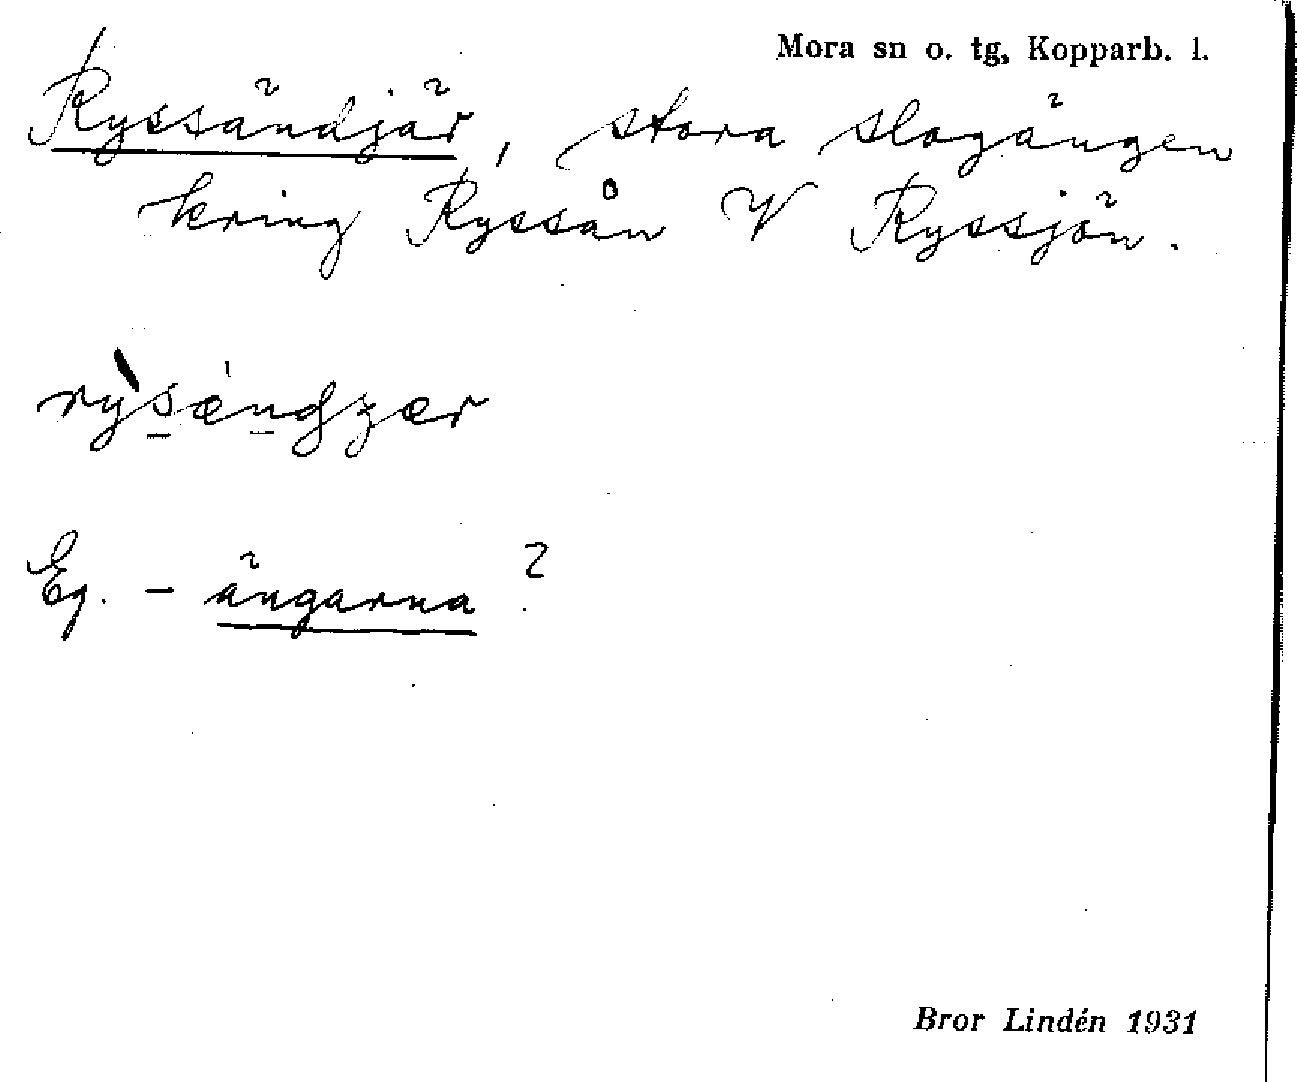 Mora sn o. tg, Kopparb. l.
Ryssändjär, stora slogängen
kring Ryssån V Ryssjön.
rỳsæ̀ndʒær
Eg. - ängarna ?
Bror Lindén 1931